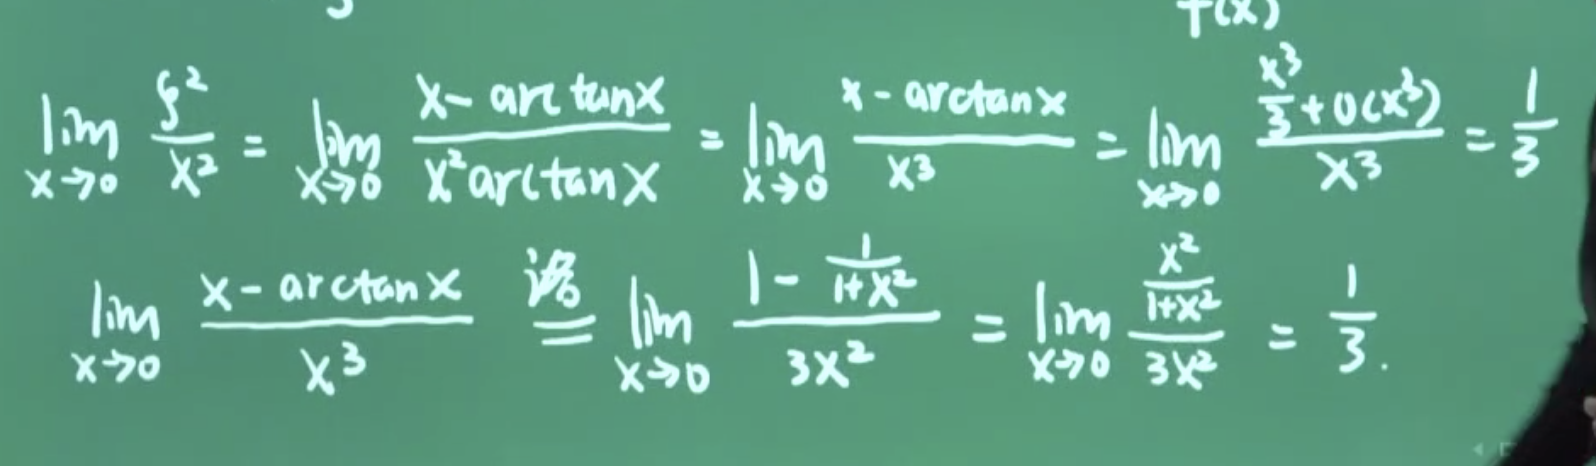 f(x)
lim x→0 ξ²/x² = lim x→0 (x - arctanx)/(x² arctanx) = lim x→0 (x - arctanx)/x³ = lim x→0 (x³/3 + o(x³))/x³ = 1/3
lim x→0 (x - arctanx)/x³ 洛= lim x→0 (1 - 1/(1+x²))/(3x²) = lim x→0 (x²/(1+x²))/(3x²) = 1/3.